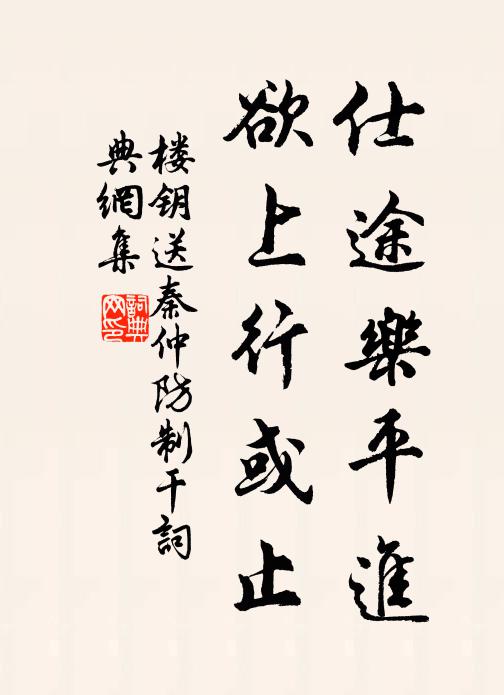 仕途樂平進
欲上行或止
楼钥送秦仲防制干詞
典網集
詞典
网印